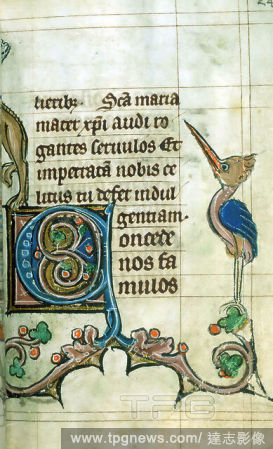 Sc̄a maria
mater xp̄i audi ro
gantes seruulos Et
impetratam nobis ce
litus tu defer indul
gentiam.
Concede
nos fa
mulos
TPG
www.tpgnews.com/ 達志影像